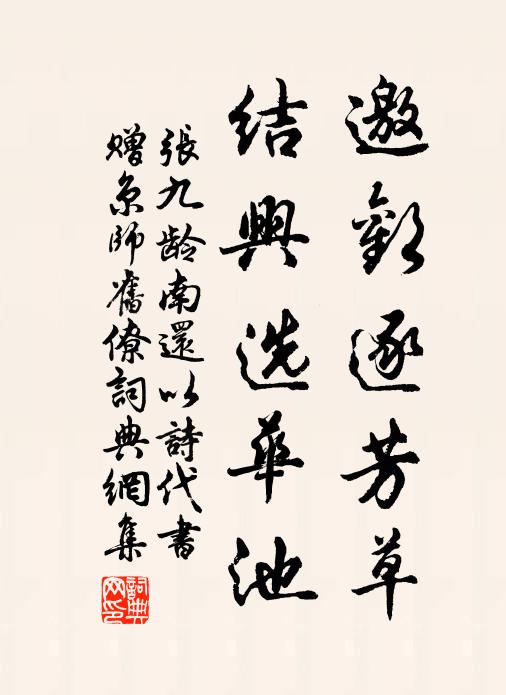 邀歡逐芳草
結興选華池
張九齡南還以詩代書
贈京師舊僚詞典網集
詞典
网印